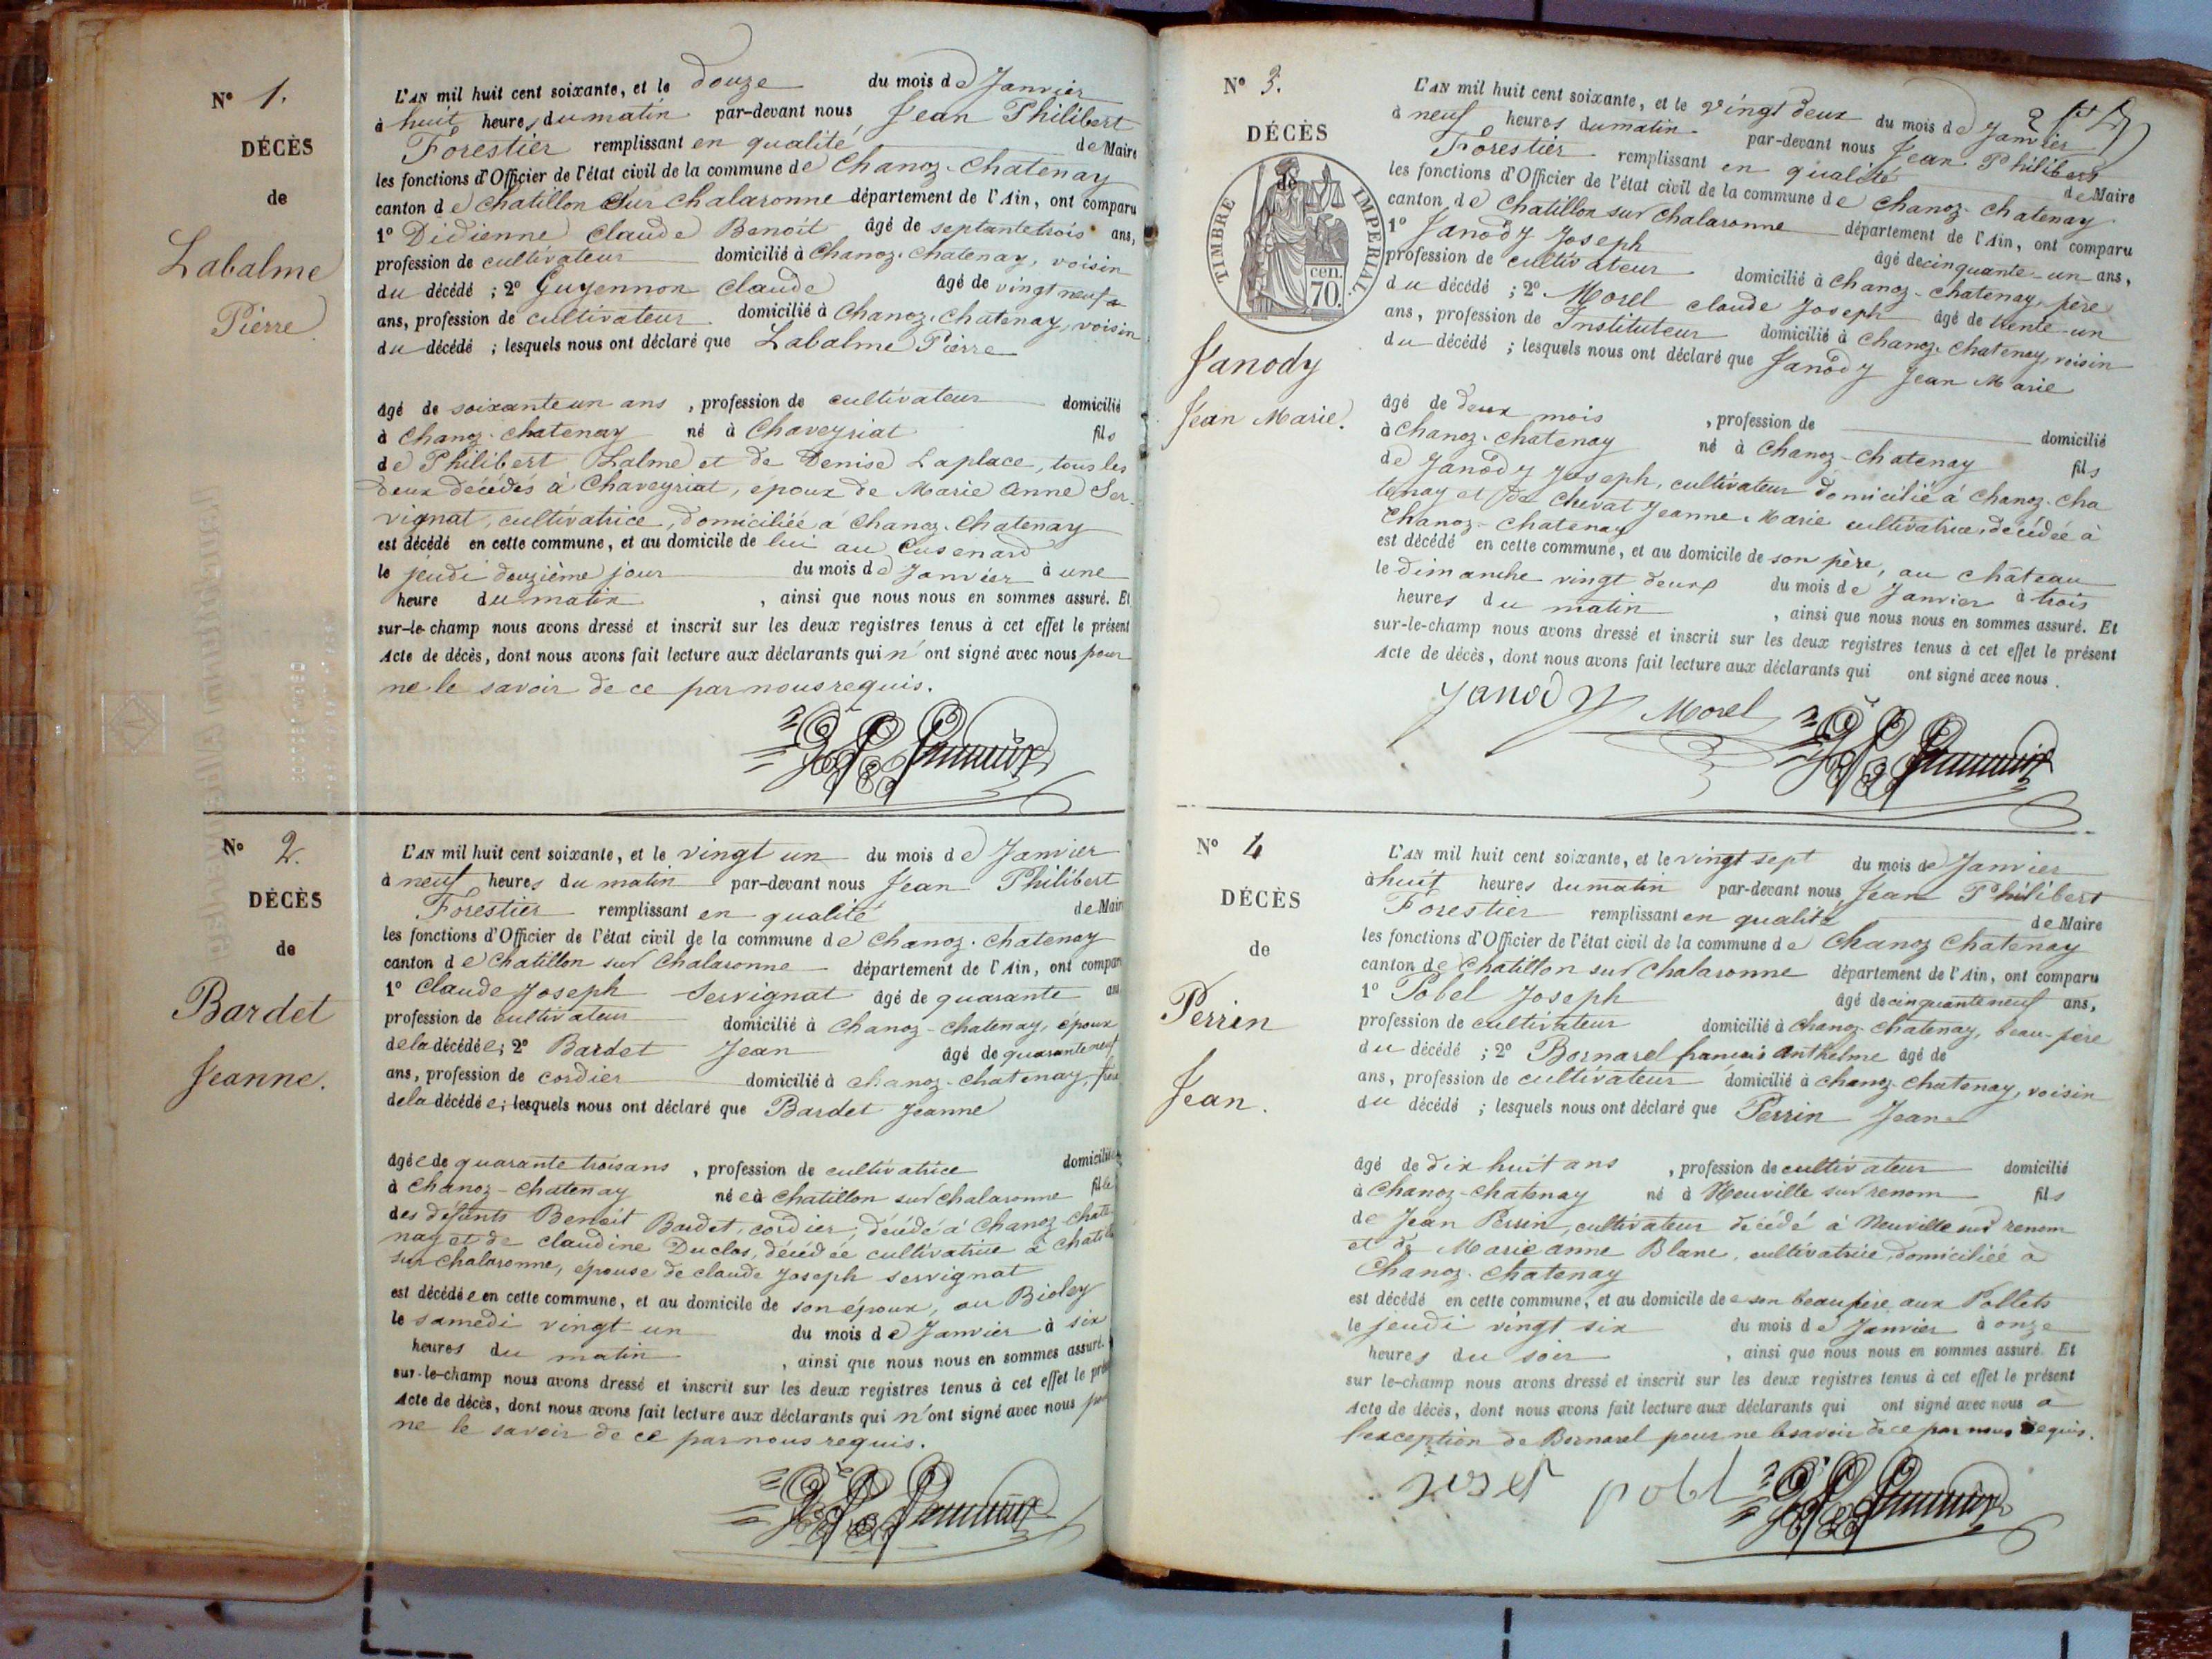 N° 1.
DÉCÈS
de
Labalme
Pierre
L'AN mil huit cent soixante, et le douze du mois de Janvier
à huit heures du matin par-devant nous Jean Philibert
Forestier remplissant en qualité de Maire
les fonctions d'Officier de l'état civil de la commune de Chanoz-Chatenay
canton de Chatillon Sur Chalaronne département de l'Ain, ont comparu
1° Didienne Claude Benoit âgé de septantetrois ans,
profession de cultivateur domicilié à Chanoz-Chatenay, voisin
du décédé ; 2° Guyennon Claude âgé de vingt neuf
ans, profession de cultivateur domicilié à Chanoz-Chatenay, voisin
du décédé ; lesquels nous ont déclaré que Labalme Pierre
âgé de soixante un ans , profession de cultivateur domicilié
à Chanoz-Chatenay né à Chaveyriat fils
de Philibert Lalme et de Denise Laplace, tous les
deux décédés à Chaveyriat, epoux de Marie Anne Ser-
vignat, cultivatrice, domiciliée à Chanoz-Chatenay
est décédé en cette commune, et au domicile de lui au Cusenard
le jeudi douzième jour du mois de Janvier à une
heure du matin , ainsi que nous nous en sommes assuré. Et
sur-le-champ nous avons dressé et inscrit sur les deux registres tenus à cet effet le présent
Acte de décès, dont nous avons fait lecture aux déclarants qui n'ont signé avec nous pour
ne le savoir de ce par nous requis.
N° 2.
DÉCÈS
de
Bardet
Jeanne.
L'AN mil huit cent soixante, et le vingt un du mois de Janvier
à neuf heures du matin par-devant nous Jean Philibert
Forestier remplissant en qualité de Maire
les fonctions d'Officier de l'état civil de la commune de Chanoz-Chatenay
canton de Chatillon sur Chalaronne département de l'Ain, ont compar
1° Claude Joseph Servignat âgé de quarante ans
profession de cultivateur domicilié à Chanoz-Chatenay, époux
de la décédée; 2° Bardet Jean âgé de quarante neuf
ans, profession de cordier domicilié à Chanoz-Chatenay,
de la décédée; lesquels nous ont déclaré que Bardet Jeanne
âgée de quarante trois ans , profession de cultivatrice domicilié
à Chanoz-Chatenay née à Chatillon sur Chalaronne fille
des défunts Benoit Bardet, cordier, décédé à Chanoz-Chate
nay et de Claudine Duclos, décédée cultivatrice à Chatillo
sur Chalaronne, épouse de Claude Joseph Servignat
est décédée en cette commune, et au domicile de son époux, au Bioley
le samedi vingt-un du mois de Janvier à six
heures du matin , ainsi que nous nous en sommes assuré.
sur-le-champ nous avons dressé et inscrit sur les deux registres tenus à cet effet le prés
Acte de décès, dont nous avons fait lecture aux déclarants qui n'ont signé avec nous pour
ne le savoir de ce par nous requis.
N° 3.
DÉCÈS
de
TIMBRE IMPERIAL
70. cen.
Janody
Jean Marie.
L'AN mil huit cent soixante, et le vingt deux du mois de Janvier
à neuf heures du matin par-devant nous Jean Philibert
Forestier remplissant en qualité de Maire
les fonctions d'Officier de l'état civil de la commune de Chanoz-Chatenay
canton de Chatillon sur Chalaronne département de l'Ain, ont comparu
1° Janody Joseph âgé de cinquante-un ans,
profession de cultivateur domicilié à Chanoz-Chatenay, père
du décédé ; 2° Morel Claude Joseph âgé de trente-un
ans, profession de Instituteur domicilié à Chanoz-Chatenay, voisin
du décédé ; lesquels nous ont déclaré que Janody Jean Marie
âgé de deux mois , profession de domicilié
à Chanoz-Chatenay né à Chanoz-Chatenay fils
de Janody Joseph, cultivateur domicilié à Chanoz-Cha
tenay et de Chevat Jeanne-Marie cultivatrice, décédée à
Chanoz-Chatenay
est décédé en cette commune, et au domicile de son père, au château
le dimanche vingt deux du mois de Janvier à trois
heures du matin , ainsi que nous nous en sommes assuré. Et
sur-le-champ nous avons dressé et inscrit sur les deux registres tenus à cet effet le présent
Acte de décès, dont nous avons fait lecture aux déclarants qui ont signé avec nous.
Janody Morel
N° 4
DÉCÈS
de
Perrin
Jean.
L'AN mil huit cent soixante, et le vingt sept du mois de Janvier
à huit heures du matin par-devant nous Jean Philibert
Forestier remplissant en qualité de Maire
les fonctions d'Officier de l'état civil de la commune de Chanoz Chatenay
canton de Chatillon sur Chalaronne département de l'Ain, ont comparu
1° Pobel Joseph âgé de cinquante neuf ans,
profession de cultivateur domicilié à Chanoz-Chatenay, beau-père
du décédé ; 2° Bornarel françois Anthelme âgé de
ans, profession de cultivateur domicilié à Chanoz-Chatenay, voisin
du décédé ; lesquels nous ont déclaré que Perrin Jean
âgé de dix huit ans , profession de cultivateur domicilié
à Chanoz-Chatenay né à Neuville sur renom fils
de Jean Perrin, cultivateur décédé à Neuville sur renom
et de Marie Anne Blanc, cultivatrice, domiciliée à
Chanoz-Chatenay
est décédé en cette commune, et au domicile de son beau père aux Pollets
le jeudi vingt six du mois de Janvier à onze
heures du soir , ainsi que nous nous en sommes assuré. Et
sur le-champ nous avons dressé et inscrit sur les deux registres tenus à cet effet le présent
Acte de décès, dont nous avons fait lecture aux déclarants qui ont signé avec nous a
l'exception de Bornarel pour ne le savoir de ce par nous requis.